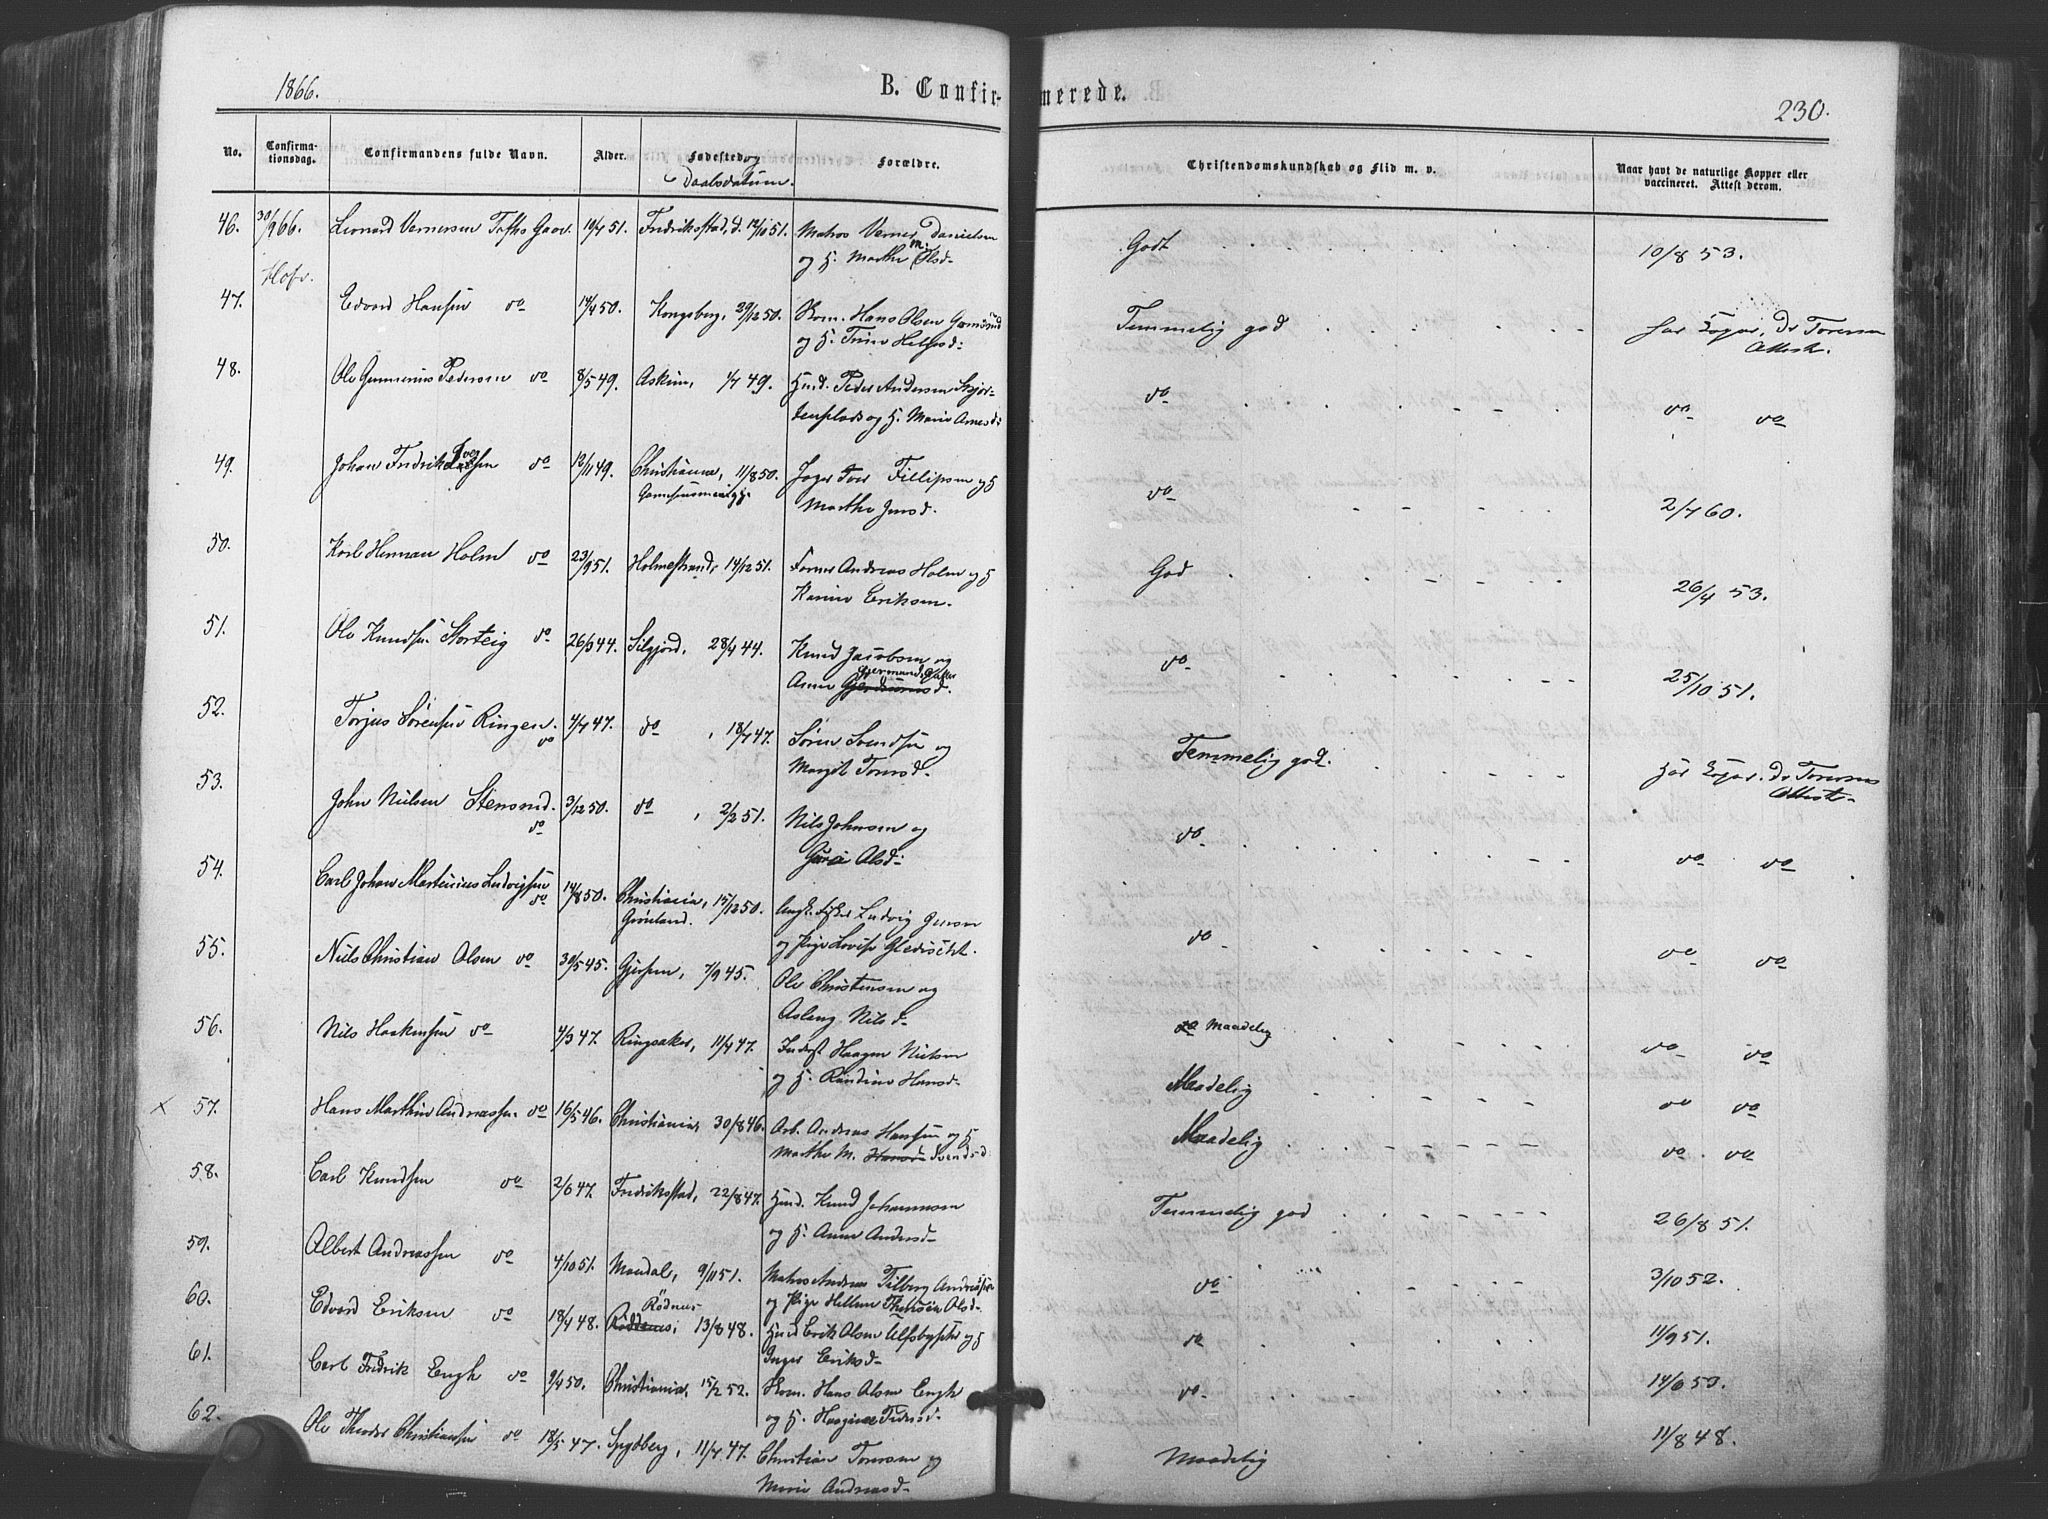 1866.
B. Confirmerede.
230.
No.
Confirmationsdag.
Confirmandens fulde Navn.
Alder.
Fødested og Daabsdatum.
Forældre.
Christendomskundskab og Flid m. v.
Naar havt de naturlige Kopper eller vaccineret. Attest derom.
46. 30/9 66. Leonard Vernersen Tofths Gave. 19/4 51. Fredriksstad, d. 12/10 51. Matros Verner Danielsen Godt 10/8 53.
Hofv. og H. Marthe M. Olsd.
47. Edvard Hansen do 14/4 50. Kongsberg, 29/12 50. Kom. Hans Olsen Temmelig god har Kopar, Dr Toresen
og H. Trine Attest.
48. Ole Gunnerius Pedersen do 8/5 49. Askim, 1/7 49. Huusd. Peder Andersen do do do
og H. Marie Arnesd.
49. Johan Fredrik do 12/11 49. Christiania, 11/8 50. Fillipsen og H do 2/7 60.
Marthe Jensd.
50. Karl Herman Holm do 23/9 51. Holmestrand, 14/12 51. Andreas Holm og H God 26/4 53.
Karine Eriksen.
51. Ole Knudsen Storteig do 26/3 44. Silgjord, 28/4 44. Knud Jacobsen og do 25/10 51.
Anne
52. Torjus Sørensen Ringen. do 4/4 47. do, 18/4 47. Søren Svendsen og Temmelig god. har Kopar. Dr Toresens
Margit Attest.
53. John Nielsen Stensrud. do 3/12 50. do, 2/2 51. Nils Johnsen og do do do
Olsd.
54. Carl Johan Martinius Ludvigsen do 14/8 50. Christiania, 15/12 50. Ludvig do do do
Grønland. og Pige Lovise
55. Nils Christian Olsen do 30/5 45. Gjersen, 7/9 45. Ole Christensen og do Maadelig do do
Aslaug Nilsd
56. Nils Haakensen do 4/3 47. Ringsaker, 11/4 47. Inderst Haagen Nielsen Maadelig do do
og H. Randine Hansd.
x 57. Hans Marthin Andreassen do 16/5 46. Christiania, 30/8 46. Arb. Andreas Hansen og H Maadelig do do
Marthe M. Svendsd
58. Carl Knudsen do 2/6 47. Fredriksstad, 22/8 47. Huusd. Knud Johannesen Temmelig god 26/8 51.
og H. Anne Andersd.
59. Albert Andreassen do 4/10 51. Mandal, 9/11 51. Matros Andreas Tilberg Andreassen do 3/10 52.
og Pige Hellene Olsd.
60. Edvard Eriksen do 18/4 48. Rødnes, 13/8 48. Huusd Erik Olsen og H do 11/9 51.
Inger Eriksd.
61. Carl Fredrik Engh do 9/4 50. Christiania, 15/2 52. Kom. Hans Olsen Engh do 14/6 50.
og H. Pedersd.
62. Ole Theodor Christiansen do 18/5 47. Spydberg, 11/7 47. Christian Toresen og Maadelig 11/8 48.
Marie Andreasd.